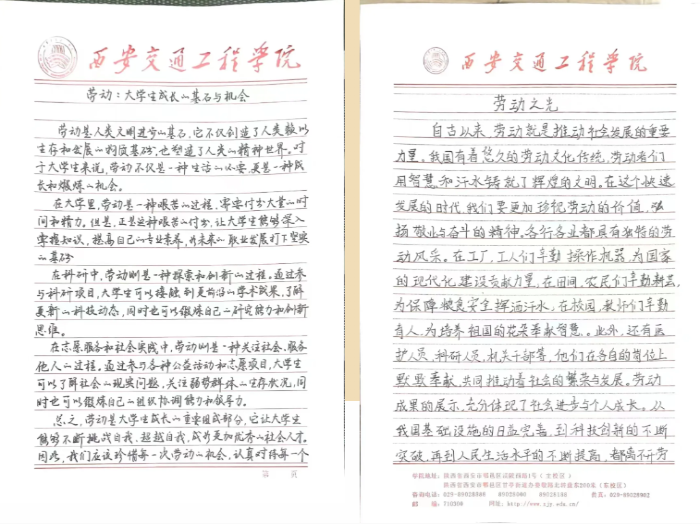 西安交通工程学院
劳动：大学生成长的基石与机会
劳动是人类文明进步的基石，它不仅创造了人类赖以
生存和发展的物质基础，也塑造了人类的精神世界。对
于大学生来说，劳动不仅是一种生活的必要，更是一种成
长和锻炼的机会。
在大学里，劳动是一种艰苦的过程，需要付大量的时
间和精力。但是，正是这种艰苦的付出，让大学生能够深入
掌握知识，提高自己的专业素养，为未来的职业发展打下坚实
的基础
在科研中，劳动则是一种探索和创新的过程。通过参
与科研项目，大学生可以接触到更前沿的学术成果，了解
更新的科技动态，同时也可以锻炼自己的研究能力和创新
思维。
在志愿服务和社会实践中，劳动则是一种关注社会、服务
他人的过程。通过参与各种公益活动和志愿项目，大学生
可以了解社会的现实问题，关注弱势群体的生存状况，同
时也可以锻炼自己的组织协调能力和领导力。
总之，劳动是大学生成长的重要组成部分，它让大学生
能够不断挑战自我、超越自我，成为更加优秀的社会人才。
因此，我们应该珍惜每一次劳动的机会，认真对待每一个
第 页
西安交通工程学院
劳动之光
自古以来，劳动就是推动社会发展的重要
力量。我国有着悠久的劳动文化传统，劳动者们
用智慧和汗水铸就了辉煌的文明。在这个快速
发展的时代，我们要更加珍视劳动的价值，弘
扬敬业与奋斗的精神。各行各业都具有独特的劳
动风采。在工厂，工人们辛勤操作机器，为国家
的现代化建设贡献力量，在田间，农民们辛勤耕耘，
为保障粮食安全挥洒汗水，在校园，教师们辛勤
育人，为培养祖国的花朵奉献智慧。此外，还有医
护人员、科研人员、机关干部等，他们在各自的岗位上
默默奉献，共同推动着社会的繁荣与发展。劳动
成果的展示，充分体现了社会进步与个人成长。从
我国基础设施的日益完善，到科技创新的不断
突破，再到人民生活水平的不断提高，都离不开劳
学院地址：陕西省西安市鄠邑区
邮 编：710300 网址：http://www.xjy.edu.cn/